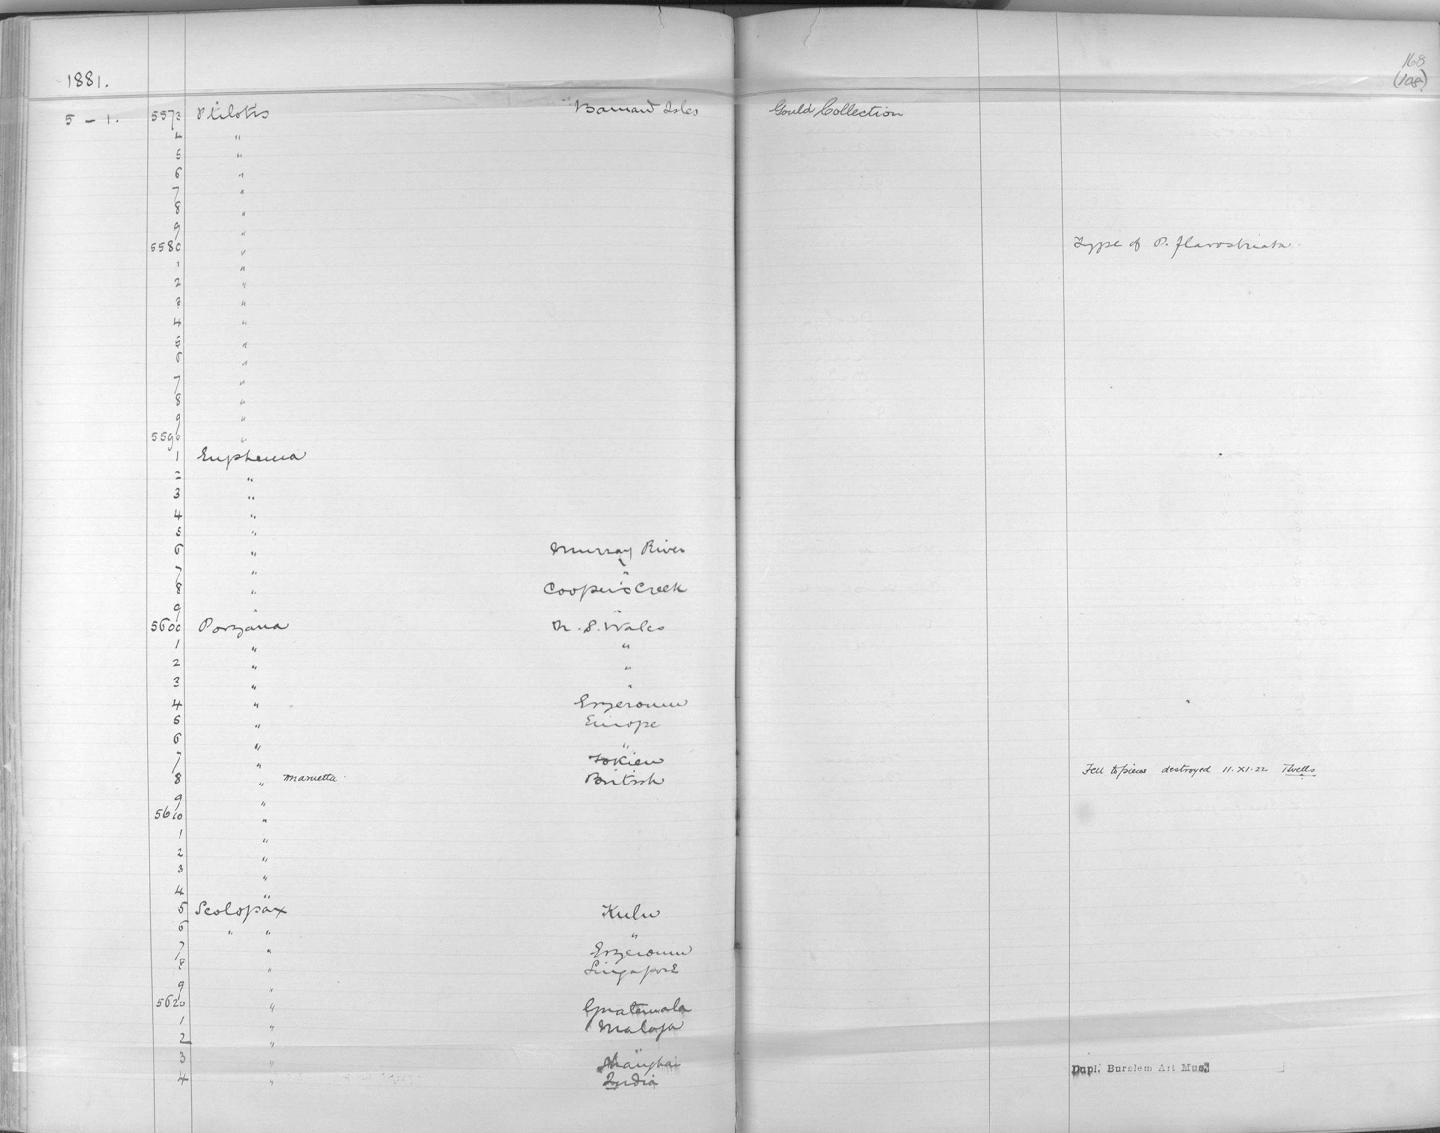 1881.
168
(108)
5 - 1. 5573 Ptilotis Barnard Isles Gould Collection
4 "
5 "
6 "
7 "
8 "
9 "
5580 " Type of P. flavostriata
1 "
2 "
3 "
4 "
5 "
6 "
7 "
8 "
9 "
5590 "
1 Euphema
2 "
3 "
4 "
5 "
6 " Murray River
7 " "
8 " Cooper's Creek
9 " "
5600 Porzana N. S. Wales
1 " "
2 " "
3 " "
4 " Erzeroum
5 " Europe
6 " "
7 " Fokien
8 " maruetta British Fell to pieces destroyed 11.XI.22
9 "
5610 "
1 "
2 "
3 "
4 "
5 Scolopax Kulu
6 " " "
7 " Erzeroum
8 " Singapore
9 "
5620 " Guatemala
1 " Malaga
2 " "
3 " Shanghai
4 " India Dupl. Burslem Art Mus.